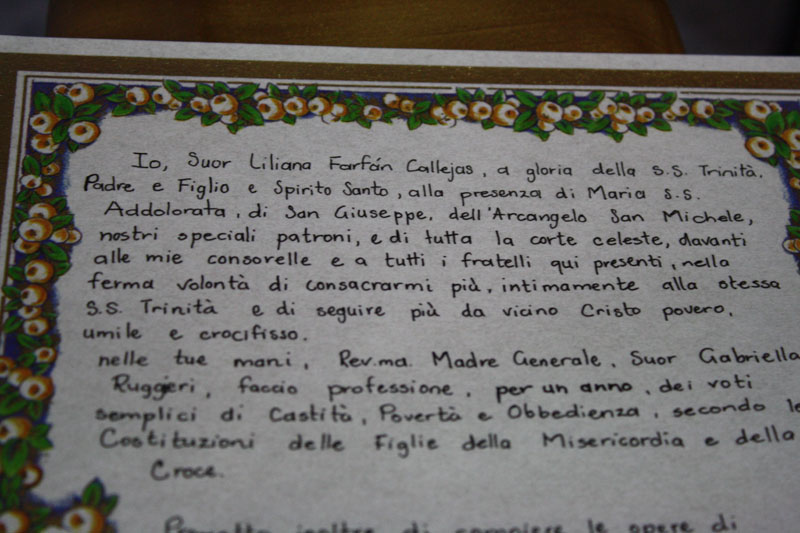 Io, Suor Liliana Farfán Callejas, a gloria della S.S. Trinità.
Padre e Figlio e Spirito Santo, alla presenza di Maria S.S.
Addolorata, di San Giuseppe, dell'Arcangelo San Michele,
nostri speciali patroni, e di tutta la corte celeste, davanti
alle mie consorelle e a tutti i fratelli qui presenti, nella
ferma volontà di consacrarmi più, intimamente alla stessa
S.S. Trinità e di seguire più da vicino Cristo povero,
umile e crocifisso.
nelle tue mani, Rev.ma. Madre Generale, Suor Gabriella
Ruggeri, faccio professione, per un anno, dei voti
semplici di Castità, Povertà e Obbedienza, secondo le
Costituzioni delle Figlie della Misericordia e della
Croce.
Prometto inoltre di compiere le opere di